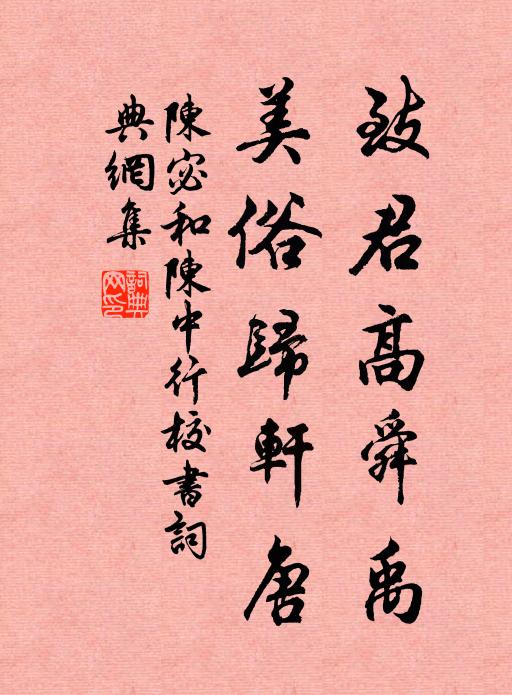 致君高舜禹
美俗歸軒唐
陳宓和陳中行校書詞
典網集
詞典網印